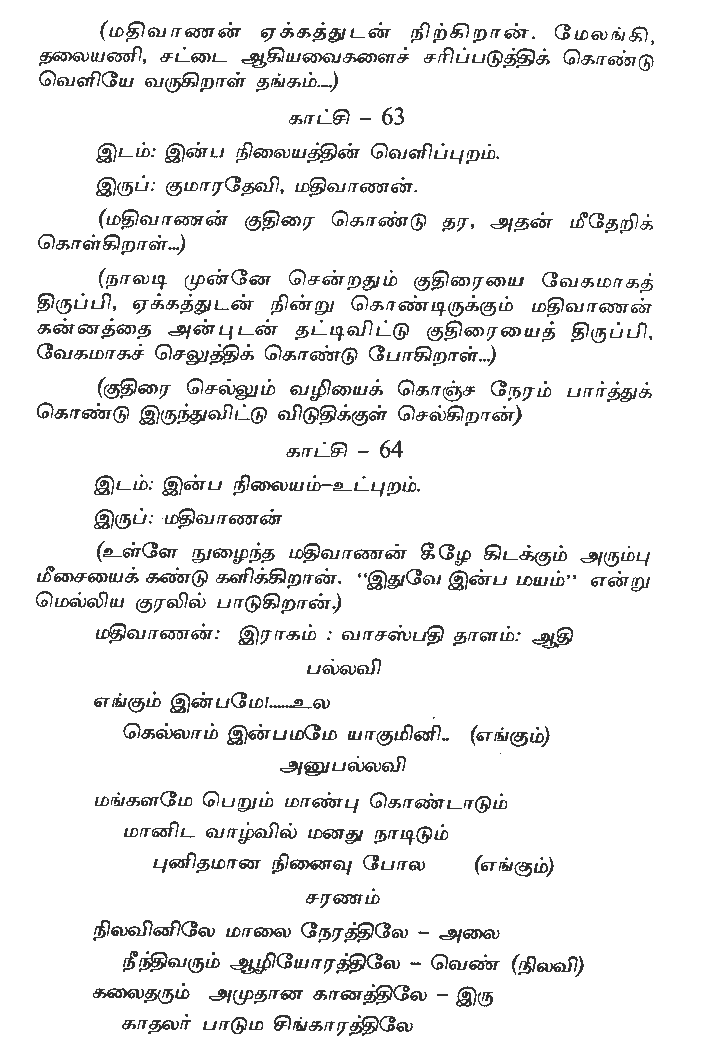 (மதிவாணன் ஏக்கத்துடன் நிற்கிறான். மேலங்கி,
தலையணி, சட்டை ஆகியவைகளைச் சரிப்படுத்திக் கொண்டு
வெளியே வருகிறாள் தங்கம்...)
காட்சி – 63
இடம்: இன்ப நிலையத்தின் வெளிப்புறம்.
இருப்: குமாரதேவி, மதிவாணன்.
(மதிவாணன் குதிரை கொண்டு தர, அதன் மீதேறிக்
கொள்கிறாள்...)
(நாலடி முன்னே சென்றதும் குதிரையை வேகமாகத்
திருப்பி, ஏக்கத்துடன் நின்று கொண்டிருக்கும் மதிவாணன்
கன்னத்தை அன்புடன் தட்டிவிட்டு குதிரையைத் திருப்பி,
வேகமாகச் செலுத்திக் கொண்டு போகிறாள்...)
(குதிரை செல்லும் வழியைக் கொஞ்ச நேரம் பார்த்துக்
கொண்டு இருந்துவிட்டு விடுதிக்குள் செல்கிறான்)
காட்சி – 64
இடம்: இன்ப நிலையம்–உட்புறம்.
இருப்: மதிவாணன்
(உள்ளே நுழைந்த மதிவாணன் கீழே கிடக்கும் அரும்பு
மீசையைக் கண்டு களிக்கிறான். “இதுவே இன்ப மயம்” என்று
மெல்லிய குரலில் பாடுகிறான்.)
மதிவாணன்: இராகம் : வாசஸ்பதி தாளம்: ஆதி
பல்லவி
எங்கும் இன்பமே!......உல
கெல்லாம் இன்பமமே யாகுமினி.. (எங்கும்)
அனுபல்லவி
மங்களமே பெறும் மாண்பு கொண்டாடும்
மானிட வாழ்வில் மனது நாடிடும்
புனிதமான நினைவு போல (எங்கும்)
சரணம்
நிலவினிலே மாலை நேரத்திலே – அலை
நீந்திவரும் ஆழியோரத்திலே – வெண் (நிலவி)
கலைதரும் அமுதான கானத்திலே – இரு
காதலர் பாடும சிங்காரத்திலே